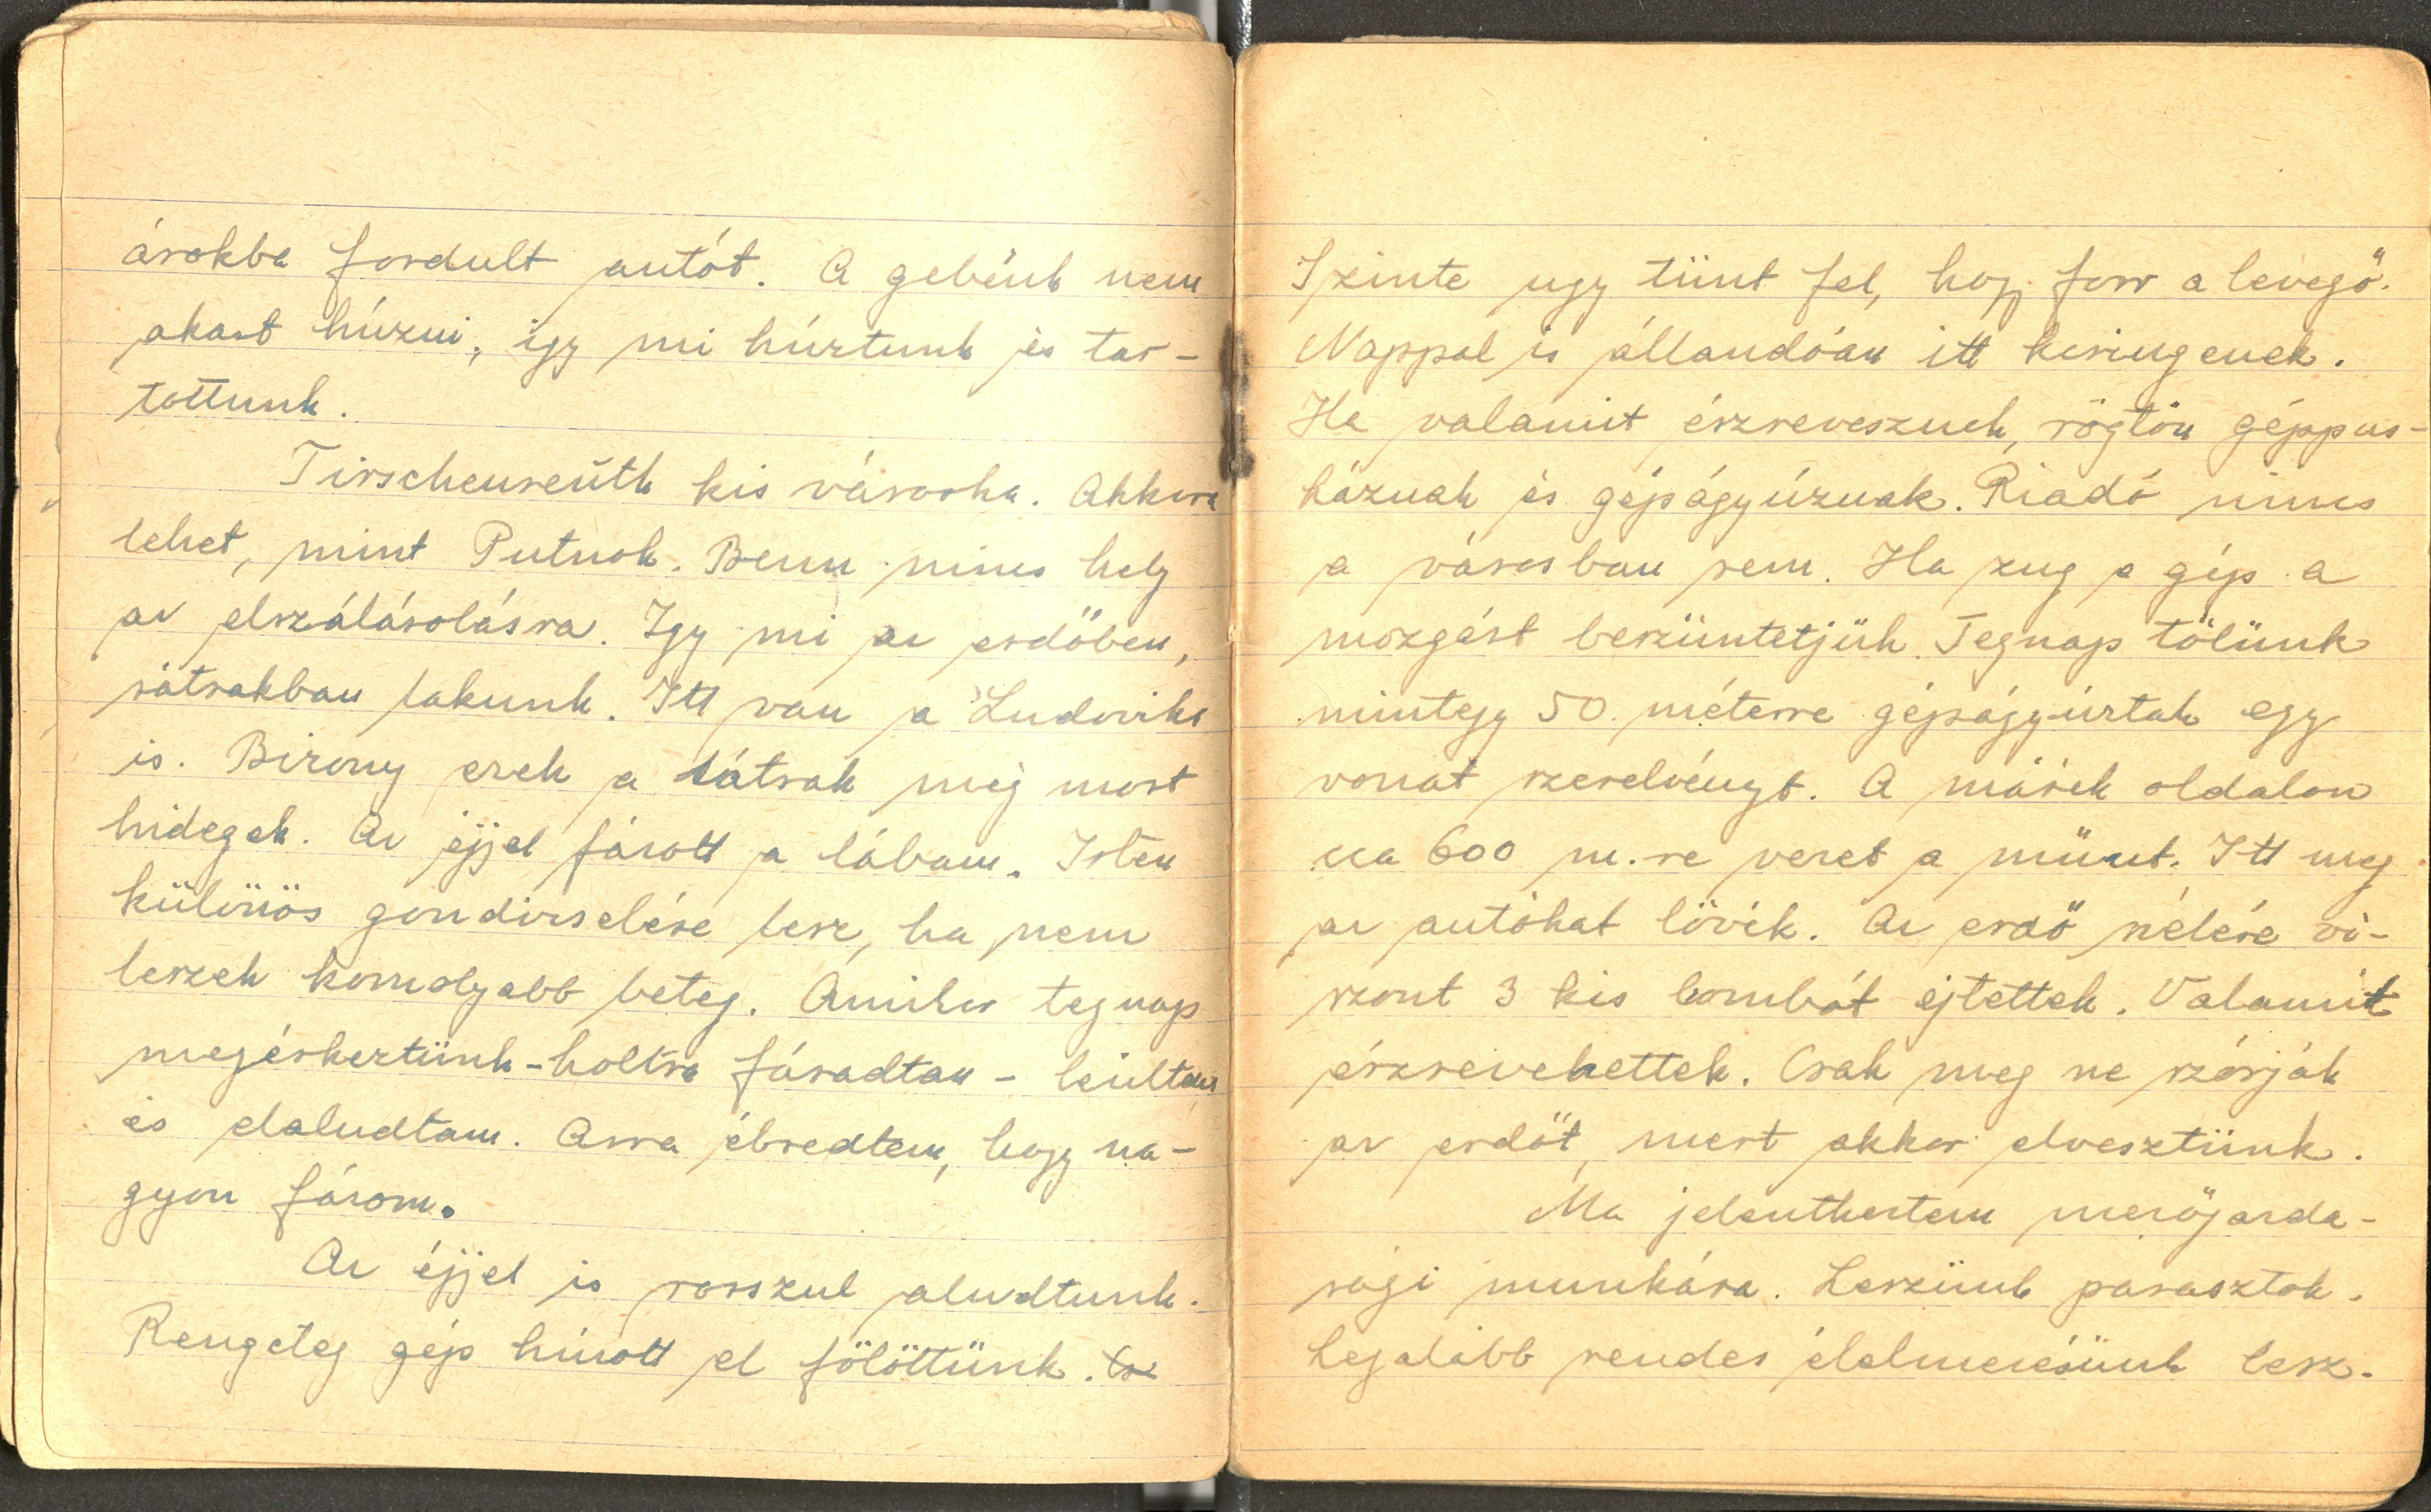 árokba fordult autót. A gebénk nem
akart húzni, igy mi húztunk és tar-
tottunk.
Tirschenreuth kis városka. Akkora
lehet, mint Putnok. Benn nincs hely
az elszálásolásra. Igy mi az erdőben,
sátrakban lakunk. Itt van a Ludovika
is. Bizony ezek a sátrak még most
hidegek. Az éjjel fázott a lábam. Isten
különös gondviselése lesz, ha nem
leszek komolyabb beteg. Amikor tegnap
megérkeztünk - holtra fáradtan - leültem
és elaludtam. Arra ébredtem, hogy na-
gyon fázom.
Az éjjel is rosszul aludtunk.
Rengeteg gép húzott el fölöttünk.
Szinte ugy tünt fel, hogy forr a levegő.
Nappal is állandóan itt keringenek.
Ha valamit észrevesznek, rögtön géppus-
káznak és gépágyúznak. Riadó nincs
a városban sem. Ha zug a gép a
mozgást beszüntetjük. Tegnap tőlünk
mintegy 50 méterre gépágyúztak egy
vonat szerelvényt. A másik oldalon
cca 600 m.re vezet a müut. Itt meg
az autókat lövik. Az erdő szélére vi-
szont 3 kis bombát ejtettek. Valamit
észrevehettek. Csak meg ne szórják
az erdőt, mert akkor elvesztünk.
Ma jelentkeztem mezőgazda-
sági munkára. Leszünk parasztok.
Legalább rendes élelmezésünk lesz.